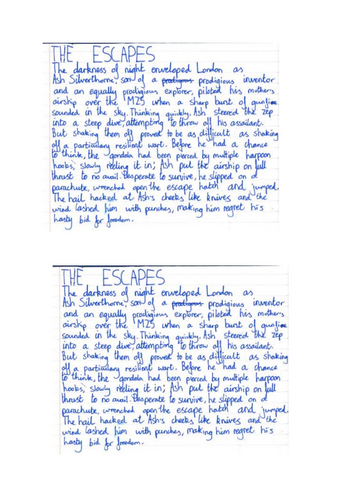 THE ESCAPES
The darkness of night enveloped London as
Ash Silverthorne, son of a prodigious inventor
and an equally prodigious explorer, piloted his mothers
airship over the M25 when a sharp burst of gunfire
sounded in the sky. Thinking quickly, Ash steered the zep
into a steep dive, attempting to throw off his assailant.
But shaking them off proved to be as difficult as shaking
off a particulary resilient wart. Before he had a chance
to think, the gondola had been pierced by multiple harpoon
hooks, slowly reeling it in; Ash put the airship on full
thrust to no avail. Desperate to survive, he slipped on a
parachute, wrenched open the escape hatch and jumped.
The hail hacked at Ash's cheeks like knives and the
wind lashed him with punches, making him regret his
hasty bid for freedom.
THE ESCAPES
The darkness of night enveloped London as
Ash Silverthorne, son of a prodigious inventor
and an equally prodigious explorer, piloted his mothers
airship over the M25 when a sharp burst of gunfire
sounded in the sky. Thinking quickly, Ash steered the zep
into a steep dive, attempting to throw off his assailant.
But shaking them off proved to be as difficult as shaking
off a particulary resilient wart. Before he had a chance
to think, the gondola had been pierced by multiple harpoon
hooks, slowly reeling it in; Ash put the airship on full
thrust to no avail. Desperate to survive, he slipped on a
parachute, wrenched open the escape hatch and jumped.
The hail hacked at Ash's cheeks like knives and the
wind lashed him with punches, making him regret his
hasty bid for freedom.